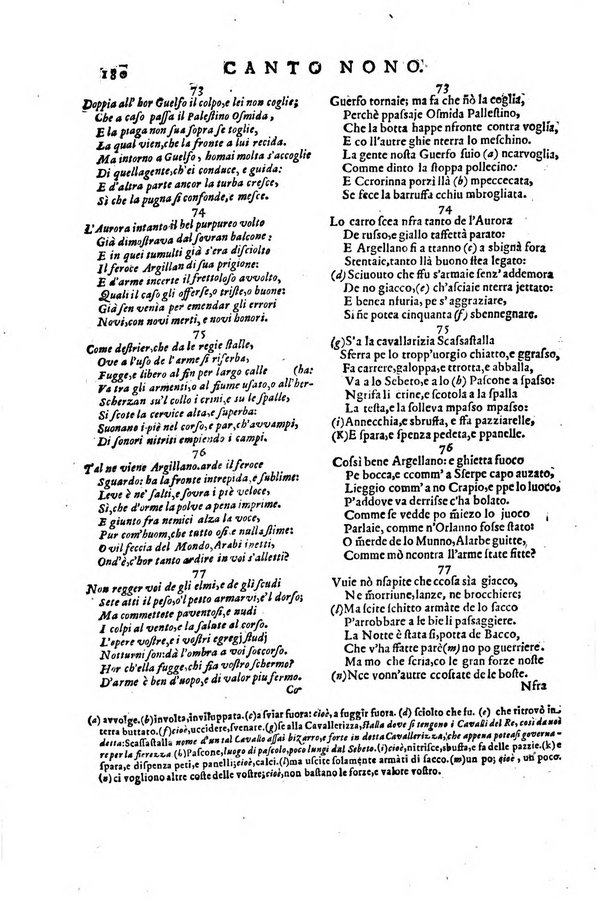 180 CANTO NONO.
73
Doppia all' hor Guelfo il colpo, e lei non coglie;
Che a caso passa il Palestino Osmida,
E la piaga non sua sopra se toglie,
La qual vien, che la fronte a lui recida.
Ma intorno a Guelfo, homai molta s'accoglie
Di quella gente, ch'ei conduce, e guida:
E d'altra parte ancor la turba cresce,
Sì che la pugna si confonde, e mesce.
74
L'Aurora intanto il bel purpureo volto
Già dimostrava dal sovran balcone:
E in quei tumulti già s'era disciolto
Il feroce Argillan di sua prigione:
E d'arme incerte il frettoloso avvolto,
Quali il caso gli offerse, o triste, o buone:
Già sen venia per emendar gli errori
Novi, con novi merti, e novi honori
75
Come destrier, che da le regie stalle,
Ove a l'uso de l'arme si riserba,
Fugge, e libero al fin per largo calle (ba:
Va tra gli armenti, o al fiume usato, o all'her-
Scherzan su'l collo i crini, e su le spalle,
Si scote la cervice alta, e superba:
Suonano i piè nel corso, e par, ch'avvampi,
Di sonori nitriti empiendo i campi.
76
Tal ne viene Argillano. arde il feroce
Sguardo: ha la fronte intrepida, e sublime:
Leve è ne' salti, e sovra i piè veloce,
Sì, che d'orme la polve a pena imprime.
E giunto fra nemici alza la voce,
Pur com'huom, che tutto osi, e nulla stime:
O vil feccia del Mondo, Arabi inetti,
Ond'è, c'hor tanto ardire in voi s'alletti?
77
Non regger voi de gli elmi, e de gli scudi
Sete atti il peso, o'l petto armarvi, e'l dorso;
Ma commettete paventosi, e nudi
I colpi al vento, e la salute al corso.
L'opere vostre, e i vostri egregj studj
Notturni son: dà l'ombra a voi soccorso.
Hor ch'ella fugge, chi fia vostro schermo?
D'arme è ben d'uopo, e di valor piu fermo.
Co-
73
Guerfo tornaie; ma fa che nō la coglia,
Perchè ppassaje Osmida Pallestino,
Che la botta happe nfronte contra voglia,
E co ll'autre ghie nterra lo meschino.
La gente nosta Guerfo suio (a) ncarvoglia,
Comme dinto la stoppa pollecino:
E Ccrorinna porzì llà (b) mpeccecata,
Pe se fece la barruffa cchiu mbrogliata.
74
Lo carro scea nfra tanto de l'Aurora
De russo, e giallo taffettà parato:
E Argellano fi a ttanno (c) a sbignà fora
Stentaie, tanto llà buono stea legato:
(d) Sciuouto che ffu s'armaie senz' addemora
De no giacco, (e) ch'asciaie nterra jettato:
E benca nfuria, pe s'aggraziare,
Si ñe potea cinquanta (f) sbennegnare.
75
(g) S'a la cavallarizia Scassastalla
Sferra pe lo tropp'uorgio chiatto, e ggrasso,
Fa carrere, galoppa, e ttrotta, e abballa,
Va a lo Sebeto, e a lo (h) Pascone a spasso:
Ngrifa li crine, e scotola a la spalla
La testa, e la solleva mpasso mpasso:
(i) Annecchia, e sbruffa, e ffa pazziarelle,
(K) E spara, e spenza pedeta, e ppanelle.
76
Cossì bene Argellano: e ghietta fuoco
Pe bocca, e ccomm' a Sserpe capo auzato;
Lieggio comm' a no Crapio, e ppe lo luoco,
P'addove va derrisse c'ha bolato.
Comme se vedde po miezo lo juoco
Parlaie, comme n'Orlanno fosse stato:
O merde de lo Munno, Alarbe guitte,
Comme mò ncontra ll'arme state fitte?
77
Vuie nò nsapite che ccosa sia giacco,
Ne mmorriune, lanze, ne brocchiere;
(l) Ma scite schitto armàte de lo sacco
P'arrobbare a le bie li passaggiere.
La Notte è stata sì, potta de Bacco,
Che v'ha ffatte parè (m) no po guerriere.
Ma mo che scria, co le gran forze noste
(n) Nce vonn'autre ccostate che le boste.
Nfra
(a) avvolge. (b) involta, inviluppata. (c) a sviar fuora: cioè, a fuggir fuora. (d) sciolto che fu. (e) che ritrovò in
terra buttato. (f) cioè, uccidere, svenare. (g) se alla Cavallerizza, stalla dove si tengono i Cavalli del Re, così da noi
detta: Scassastalla nome d'un tal Cavallo assai bizarro, e forte in detta Cavallerizza, che appena poteasi governa-
re per la fierezza (h) Pascone, luogo di pascolo, poco lungi dal Sebeto. (i) cioè, nitrisce, sbuffa, e fa delle pazzie. (k) e
spara, e dispensa peti, e panelli; cioè, calci. (l) ma uscite solamente armàti di sacco. (m) un po; cioè, un poco.
(n) ci vogliono altre coste delle vostre; cioè, non bastano le forze, e valore vostro.